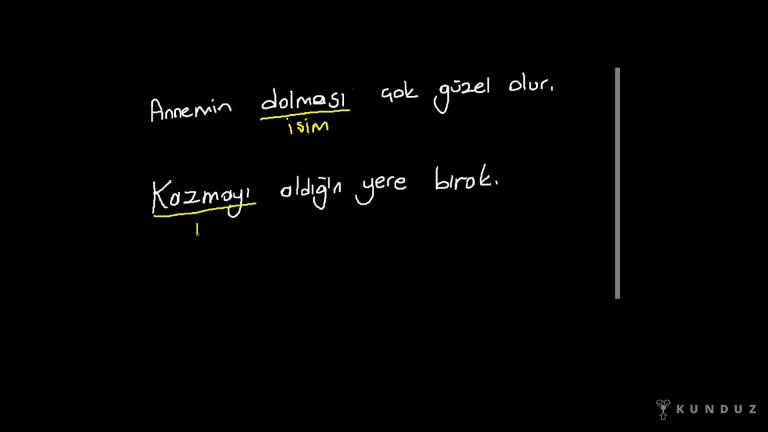 Annemin dolması çok güzel olur.
isim
Kazmayı aldığın yere bırak.
ı
KUNDUZ